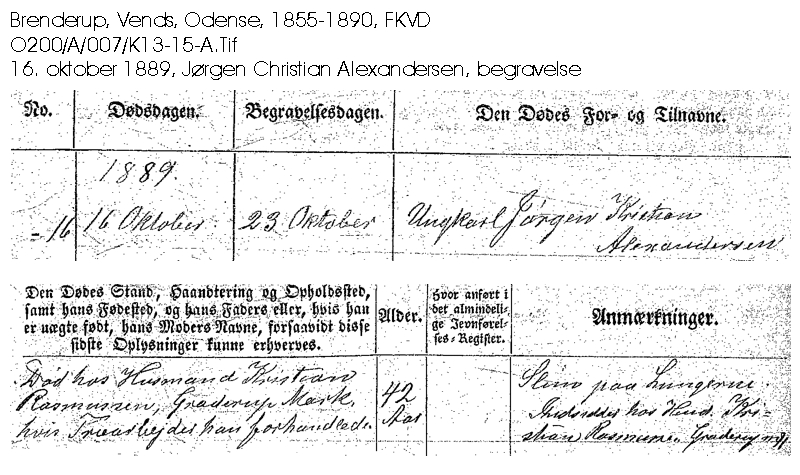 Brenderup, Vends, Odense, 1855-1890, FKVD
O200/A/007/K13-15-A.Tif
16. oktober 1889, Jørgen Christian Alexandersen, begravelse
No. Dødsdagen. Begravelsesdagen. Den Dødes For- og Tilnavne.
1889.
- 16 16 Oktober 23 Oktober Ungkarl Jørgen Kristian
Alexandersen
Den Dødes Stand, Haandtering og Opholdssted,
samt hans Fødested, og hans Faders eller, hvis han
er uægte født, hans Moders Navne, forsaavidt disse
sidste Oplysninger kunne erhverves.
Alder.
Hvor anført i
det almindeli-
ge Jevnførel-
ses-Register.
Anmærkninger.
Død hos Husmand Kristian
Rasmussen, Graderup Mark,
hvis Træarbejder han forhandlede.
42
Aar
Slim paa Lungerne.
Indsidder hos Husd. Kri-
stian Rasmussen, Graderup